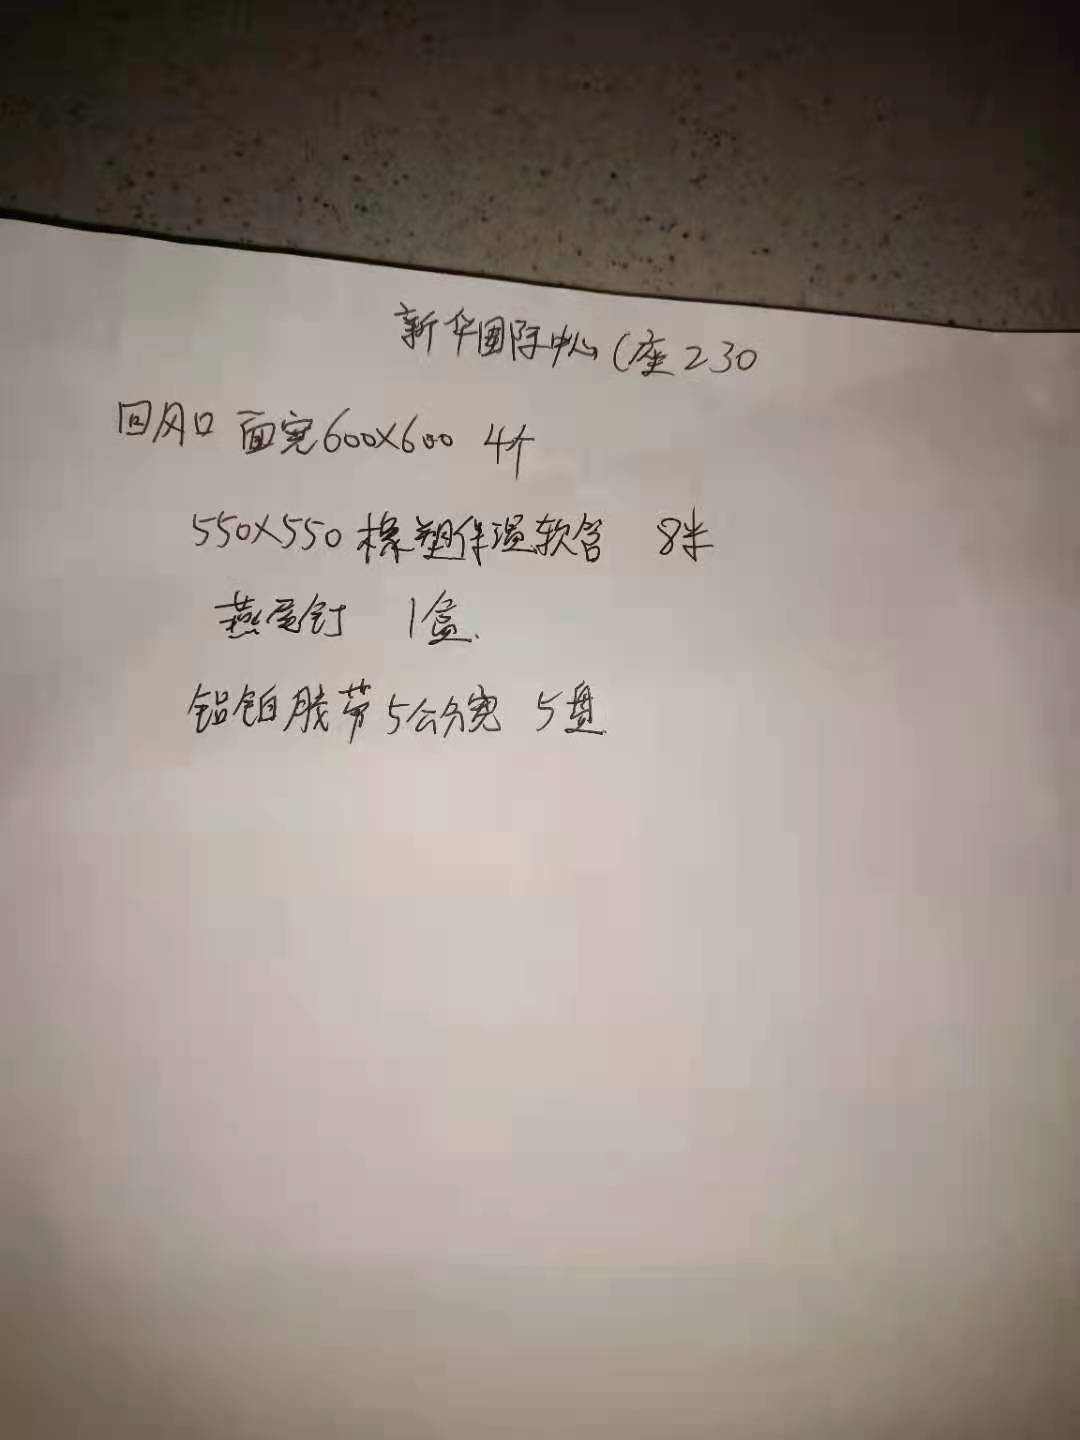 新华国际中心C座230
回风口 面宽600X600 4个
550X550橡塑保温软管 8米
燕尾钉 1盒.
铝铂胶带5公分宽 5盘